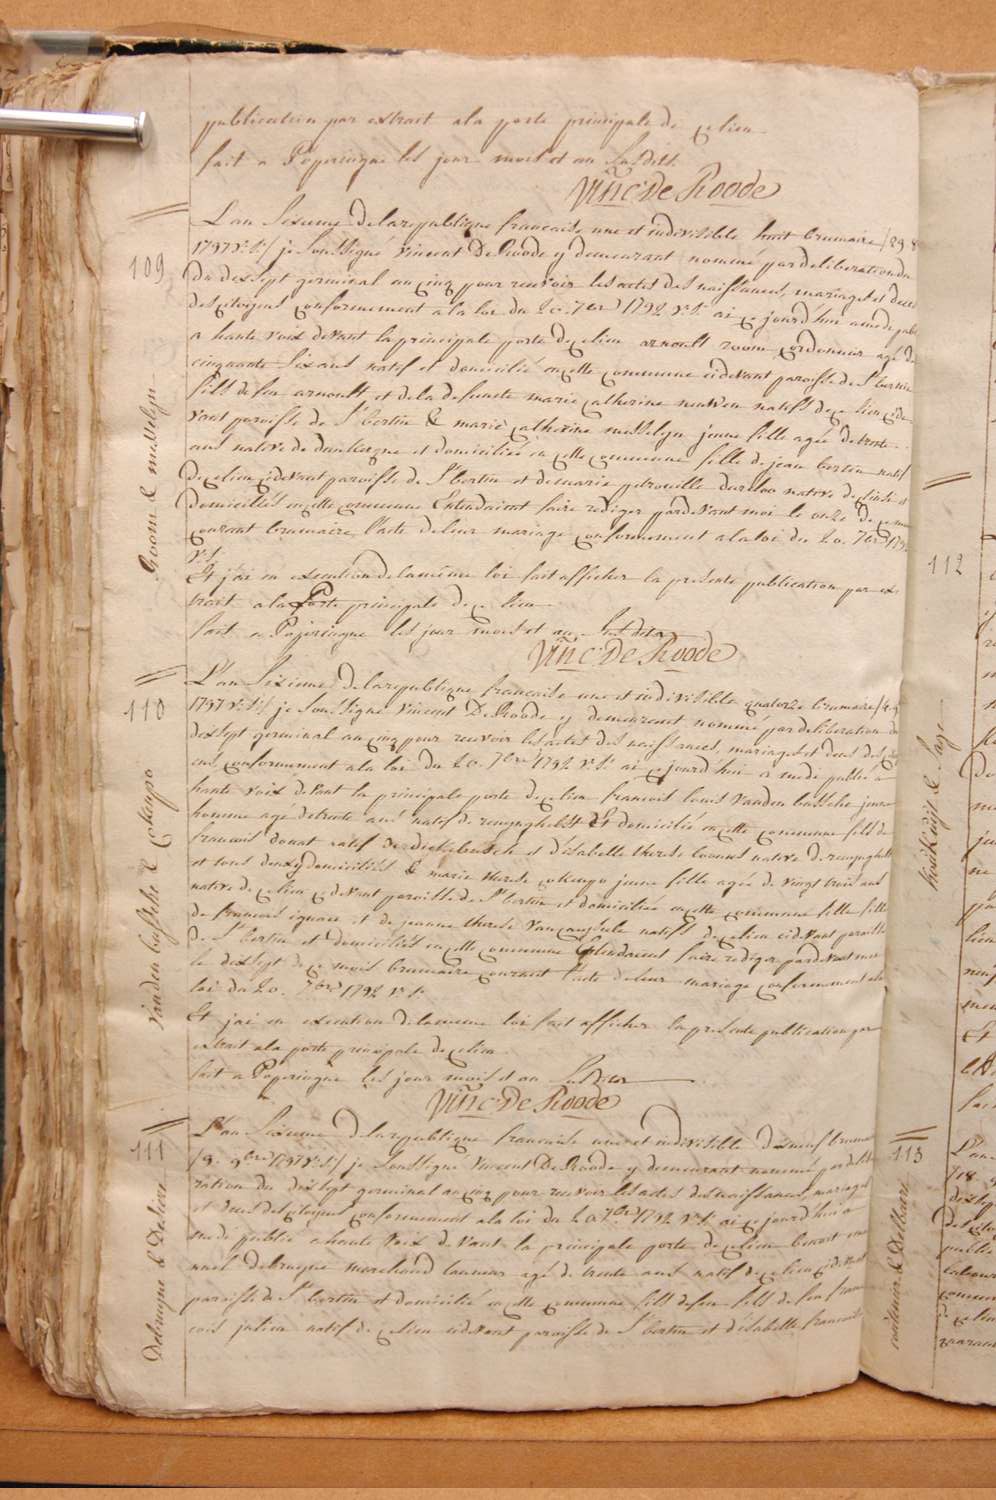 publication par extrait a la porte principale de ce lieu
fait a Poperingue les jour mois et an Susdits
Vinc: De Roode
109
Roone & masselyn
L'an Sixieme De la republique francaise une et indivisible huit brumaire / 29 8
1797 v: s:/ je Soussigné Vincent De Roode y demeurant nommé par deliberation du
du dix sept germinal an cinq pour recevoir les actes des naissances, mariages et deces
des citoyens conformement a la loi du 20. 7bre 1792 v: s: ai ce jourd'hui a midi publié
a haute voix devant la principale porte de ce lieu arnoult roone, cordonnier agé de
cinquante Six ans natif et domicilié en cette commune cidevant paroisse de St bertin
fils de feu arnoult et de la defuncte marie catherine natifs de ce lieu cide
vant paroisse de St bertin & marie catherine masselyn jeune fille agée de trente
ans native de dunkerque et domiciliée en cette commune fille de jean bertin natif
de ce lieu cidevant paroisse de St bertin et de marie petronille native de et
domiciliés en cette commune Entendaient faire rediger pardevant moi le onze de ce mois
courant brumaire l'acte de leur mariage conformement a la loi du 20. 7bre 1792
v: s:
Et j'ai en execution de la même loi fait afficher la presente publication par ex
trait a la Porte principale de ce lieu
fait a Poperingue les jour mois et an Susdits
Vinc: De Roode
110
Vanden bussche & Cokenpo
L'an Sixieme De la republique francaise une et indivisible quatorze brumaire / 4. 9
1797 v: s:/ je Soussigné Vincent De Roode y demeurant nommé par deliberation du
dix sept germinal an cinq pour recevoir les actes des naissances, mariages et deces des citoy
ens conformement a la loi du 20. 7bre 1792 v: s: ai ce jourd'hui a midi publié a
haute voix devant la principale porte de ce lieu francois louis vanden bussche jeune
homme agé de trente ans natif de renynghelst Et domicilié en cette commune fils de
francois donat natif de dickebusch et d'isabelle therese native de renynghelst
et tous deux y domiciliés & marie therese cokenpo jeune fille agée de vingt trois ans
native de ce lieu cidevant paroisse de St bertin et domiciliée en cette commune fille fille
de francois ignace et de jeanne therese natifs de ce lieu cidevant paroisse
de St bertin et domiciliés en cette commune Entendaient faire rediger pardevant moi
le dix sept de ce mois brumaire courant l'acte de leur mariage conformement a la
loi du 20. 7bre 1792 v: s:
Et j'ai en execution de la même loi fait afficher la presente publication par
extrait a la porte principale de ce lieu
fait a Poperingue les jour mois et an Susdits
Vinc: De Roode
111
Debruyne & Deliere
L'an Sixieme De la republique francaise une et indivisible dixneuf brumaire
/9. 9bre 1797 v: s:/ je Soussigné Vincent De Roode y demeurant nommé par delibe
ration du dix sept germinal an cinq pour recevoir les actes des naissances, mariages
et deces des citoyens conformement a la loi du 20 7bre 1792 v: s: ai ce jourd'hui a
midi publié a haute voix devant la principale porte de ce lieu benoit em
nuel debruyne marchand tanneur agé de trente ans natif de ce lieu cidevant
paroisse de St bertin et domicilié en cette commune fils de feu fils de feu fran
cois julien natif de ce lieu cidevant paroisse de St bertin et d'isabelle francoise
112
& Sage
113
& Delbaere